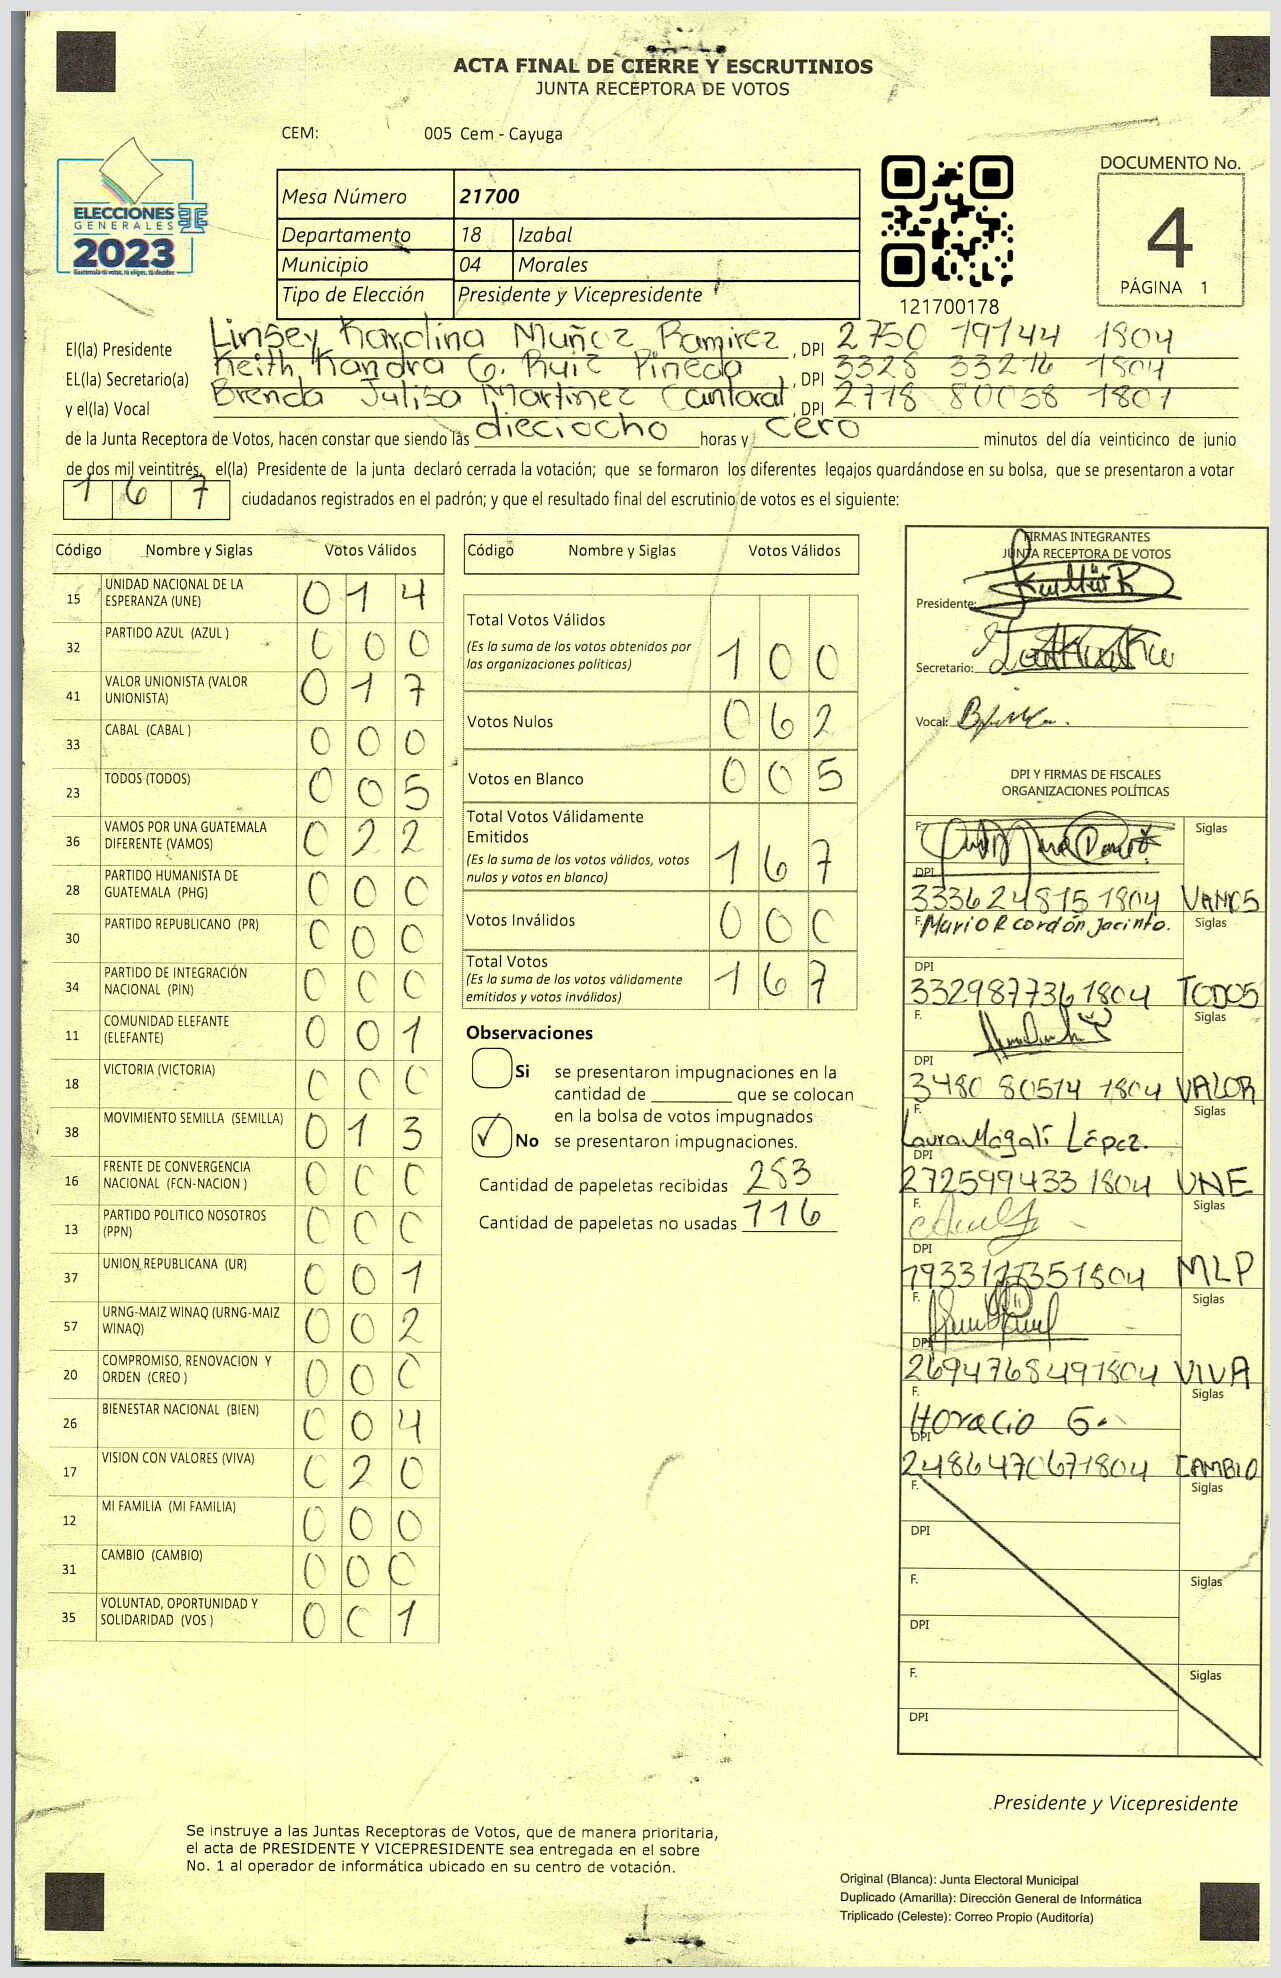 ACTA FINAL DE CIERRE Y ESCRUTINIOS
JUNTA RECEPTORA DE VOTOS
CEM: 005 Cem - Cayuga
ELECCIONES
GENERALES
2023
Guatemala tú votas, tú eliges, tú decides
Mesa Número 21700
Departamento 18 Izabal
Municipio 04 Morales
Tipo de Elección Presidente y Vicepresidente
121700178
DOCUMENTO No.
4
PÁGINA 1
El(la) Presidente Linsey Karolina Muñoz Ramirez, DPI 2750 19144 1804
EL(la) Secretario(a) Keith Kandra G. Ruiz Pineda, DPI 3328 33216 1804
y el(la) Vocal Brenda Julisa Martinez Cantoral, DPI 2778 80058 1801
de la Junta Receptora de Votos, hacen constar que siendo las dieciocho horas y cero minutos del día veinticinco de junio
de dos mil veintitrés, el(la) Presidente de la junta declaró cerrada la votación; que se formaron los diferentes legajos guardándose en su bolsa, que se presentaron a votar
167 ciudadanos registrados en el padrón; y que el resultado final del escrutinio de votos es el siguiente:
Código Nombre y Siglas Votos Válidos
15 UNIDAD NACIONAL DE LA ESPERANZA (UNE) 014
32 PARTIDO AZUL (AZUL ) 000
41 VALOR UNIONISTA (VALOR UNIONISTA) 017
33 CABAL (CABAL ) 000
23 TODOS (TODOS) 005
36 VAMOS POR UNA GUATEMALA DIFERENTE (VAMOS) 022
28 PARTIDO HUMANISTA DE GUATEMALA (PHG) 000
30 PARTIDO REPUBLICANO (PR) 000
34 PARTIDO DE INTEGRACIÓN NACIONAL (PIN) 000
11 COMUNIDAD ELEFANTE (ELEFANTE) 001
18 VICTORIA (VICTORIA) 000
38 MOVIMIENTO SEMILLA (SEMILLA) 013
16 FRENTE DE CONVERGENCIA NACIONAL (FCN-NACION ) 000
13 PARTIDO POLITICO NOSOTROS (PPN) 000
37 UNION REPUBLICANA (UR) 001
57 URNG-MAIZ WINAQ (URNG-MAIZ WINAQ) 002
20 COMPROMISO, RENOVACION Y ORDEN (CREO ) 000
26 BIENESTAR NACIONAL (BIEN) 004
17 VISION CON VALORES (VIVA) 020
12 MI FAMILIA (MI FAMILIA) 000
31 CAMBIO (CAMBIO) 000
35 VOLUNTAD, OPORTUNIDAD Y SOLIDARIDAD (VOS ) 001
Código Nombre y Siglas Votos Válidos
Total Votos Válidos
(Es la suma de los votos obtenidos por las organizaciones políticas) 100
Votos Nulos 062
Votos en Blanco 005
Total Votos Válidamente Emitidos
(Es la suma de los votos válidos, votos nulos y votos en blanco) 167
Votos Inválidos 000
Total Votos
(Es la suma de los votos válidamente emitidos y votos inválidos) 167
Observaciones
Si se presentaron impugnaciones en la
cantidad de ________ que se colocan
en la bolsa de votos impugnados
✓ No se presentaron impugnaciones.
Cantidad de papeletas recibidas 283
Cantidad de papeletas no usadas 116
FIRMAS INTEGRANTES
JUNTA RECEPTORA DE VOTOS
Presidente:
Secretario:
Vocal:
DPI Y FIRMAS DE FISCALES
ORGANIZACIONES POLÍTICAS
F. Siglas
DPI 3336 24815 1804 VAMOS
F. Mario R cordón Jacinto. Siglas
DPI 3329877361804 TODOS
F. Siglas
DPI 3480 80514 1804 VALOR
F. Laura Magalí López. Siglas
DPI 272599433 1804 UNE
F. Siglas
DPI MLP
F. Siglas
DPI 2694768491804 VIVA
F. Horacio G. Siglas
DPI 2486470671804 CAMBIO
F. Siglas
DPI
F. Siglas
DPI
F. Siglas
DPI
Presidente y Vicepresidente
Se instruye a las Juntas Receptoras de Votos, que de manera prioritaria,
el acta de PRESIDENTE Y VICEPRESIDENTE sea entregada en el sobre
No. 1 al operador de informática ubicado en su centro de votación.
Original (Blanca): Junta Electoral Municipal
Duplicado (Amarilla): Dirección General de Informática
Triplicado (Celeste): Correo Propio (Auditoría)